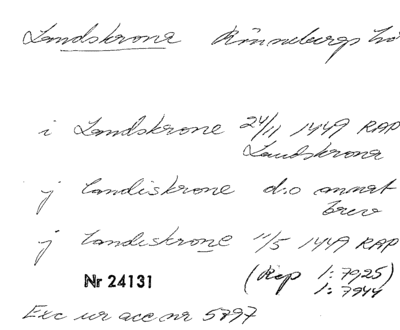 Landskrona Rönneberga hä
i Landskrone 24/11 1449 RAP
Landskrona
j landiskrone d:o annat
brev
j landiskrone 11/5 1449 RAP
(Rep 1:7925)
1:7944
Nr 24131
Exc ur acc nr 5797